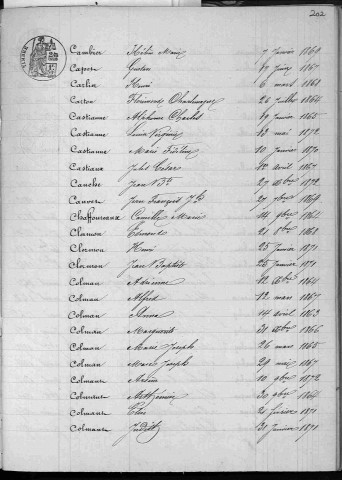 202
Cambier Marie 7 Janvier 1869
Capon Gustave 17 Juin 1867
Carlin Henri 6 mars 1868
Carton Florimond Charlemagne 26 Juillet 1864
Castianne Alphonse Charles 19 Janvier 1865
Castianne 13 mai 1872
Castianne Marie 10 Janvier 1870
Castiaux Jules César 12 avril 1867
Cauche Jean Bte 27 1872
Cauvez Jean François 27 1869
Chaffoureaux Camille Marie 14
Clamon Edmond 21 8bre 1868
Clermon Henri 25 Janvier 1871
Clermon Jean Baptiste 25 Janvier 1871
Colman Adrienne 12 1864
Colman Alfred 12 mars 1867
Colman Anna 14 avril 1863
Colman Marguerite 31 1866
Colman Marie Joseph 26 mars 1865
Colman Marie Joseph 29 mai 1867
Colmant 10 9bre 1872
Colmant 30 9bre 1864
Colmant Elise 21 février 1871
Colmant Judith 31 Janvier 1871